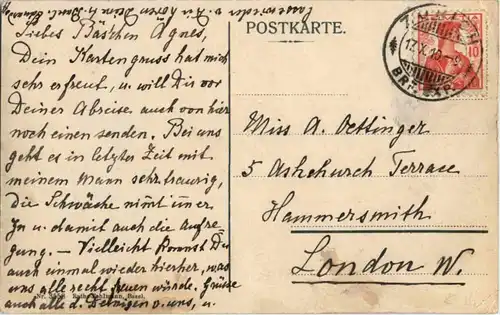 Lauwrieder v. Dir hören Deine l. Base
POSTKARTE.
Liebes Bäschen Agnes,
Dein Kartengruss hat mich
sehr erfreut, u. will Dir vor
Deiner Abreise auch von hier
noch einen senden. Bei uns
geht es in letzter Zeit mit
meinem Mann sehr traurig,
die Schwäche nimt imer
zu u. damit auch die Aufre-
gung. – Vielleicht kommst Du
auch einmal wieder hierher, was
uns alle recht freuen würde. Grüsse
auch alle d. Deinigen v. uns, u.
17.X.10
10
Miss A. Oettinger
5 Ashchurch Terrace
Hammersmith
London W.
Basel.